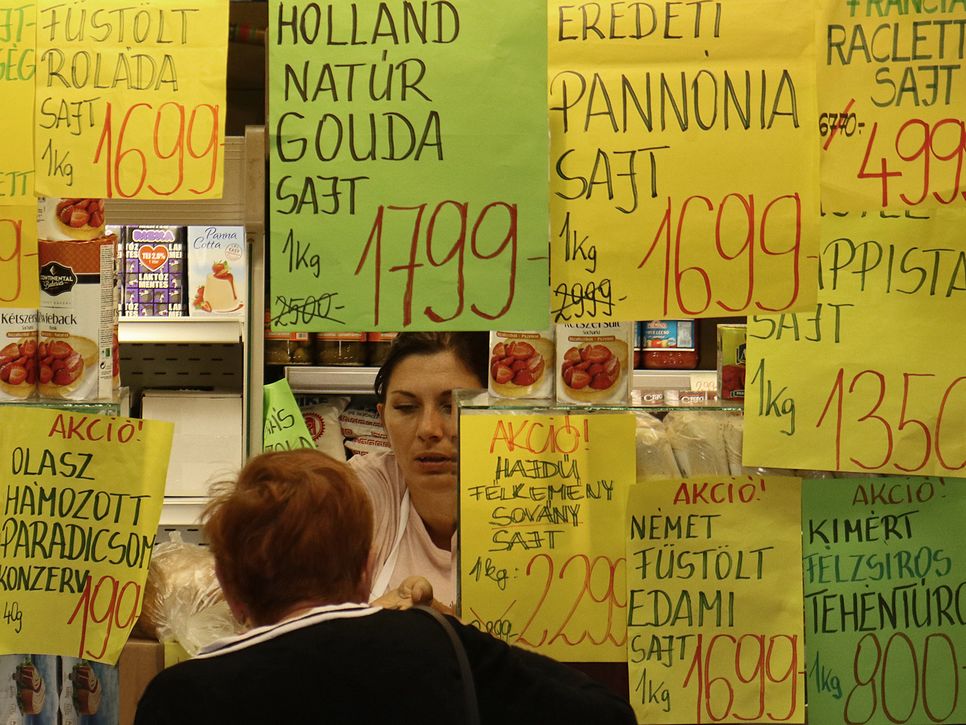 FÜSTÖLT
ROLÁDA
SAJT
1Kg
1699-
HOLLAND
NATÚR
GOUDA
SAJT
1Kg
1799-
2500-
EREDETI
PANNÓNIA
SAJT
1Kg
1699-
2999-
FRANCIA
RACLETT
SAJT
6770-
499
APPISTA
SAJT
1Kg
1350
Panna
Cotta
RISKA
TEJ 2,8%
LAKTÓZ
MENTES
CONTINENTAL
Bakeries
Kétszersült
Zwieback
Kétszersült
AKCIÓ!
OLASZ
HÁMOZOTT
PARADICSOM
KONZERV
40g
199
AKCIÓ!
HAJDÚ
FÉLKEMÉNY
SOVÁNY
SAJT
1kg:
2299
AKCIÓ!
NÉMET
FÜSTÖLT
EDAMI
SAJT
1Kg
1699-
AKCIÓ!
KIMÉRT
FÉLZSÍROS
TEHÉNTÚRÓ
1Kg
800-